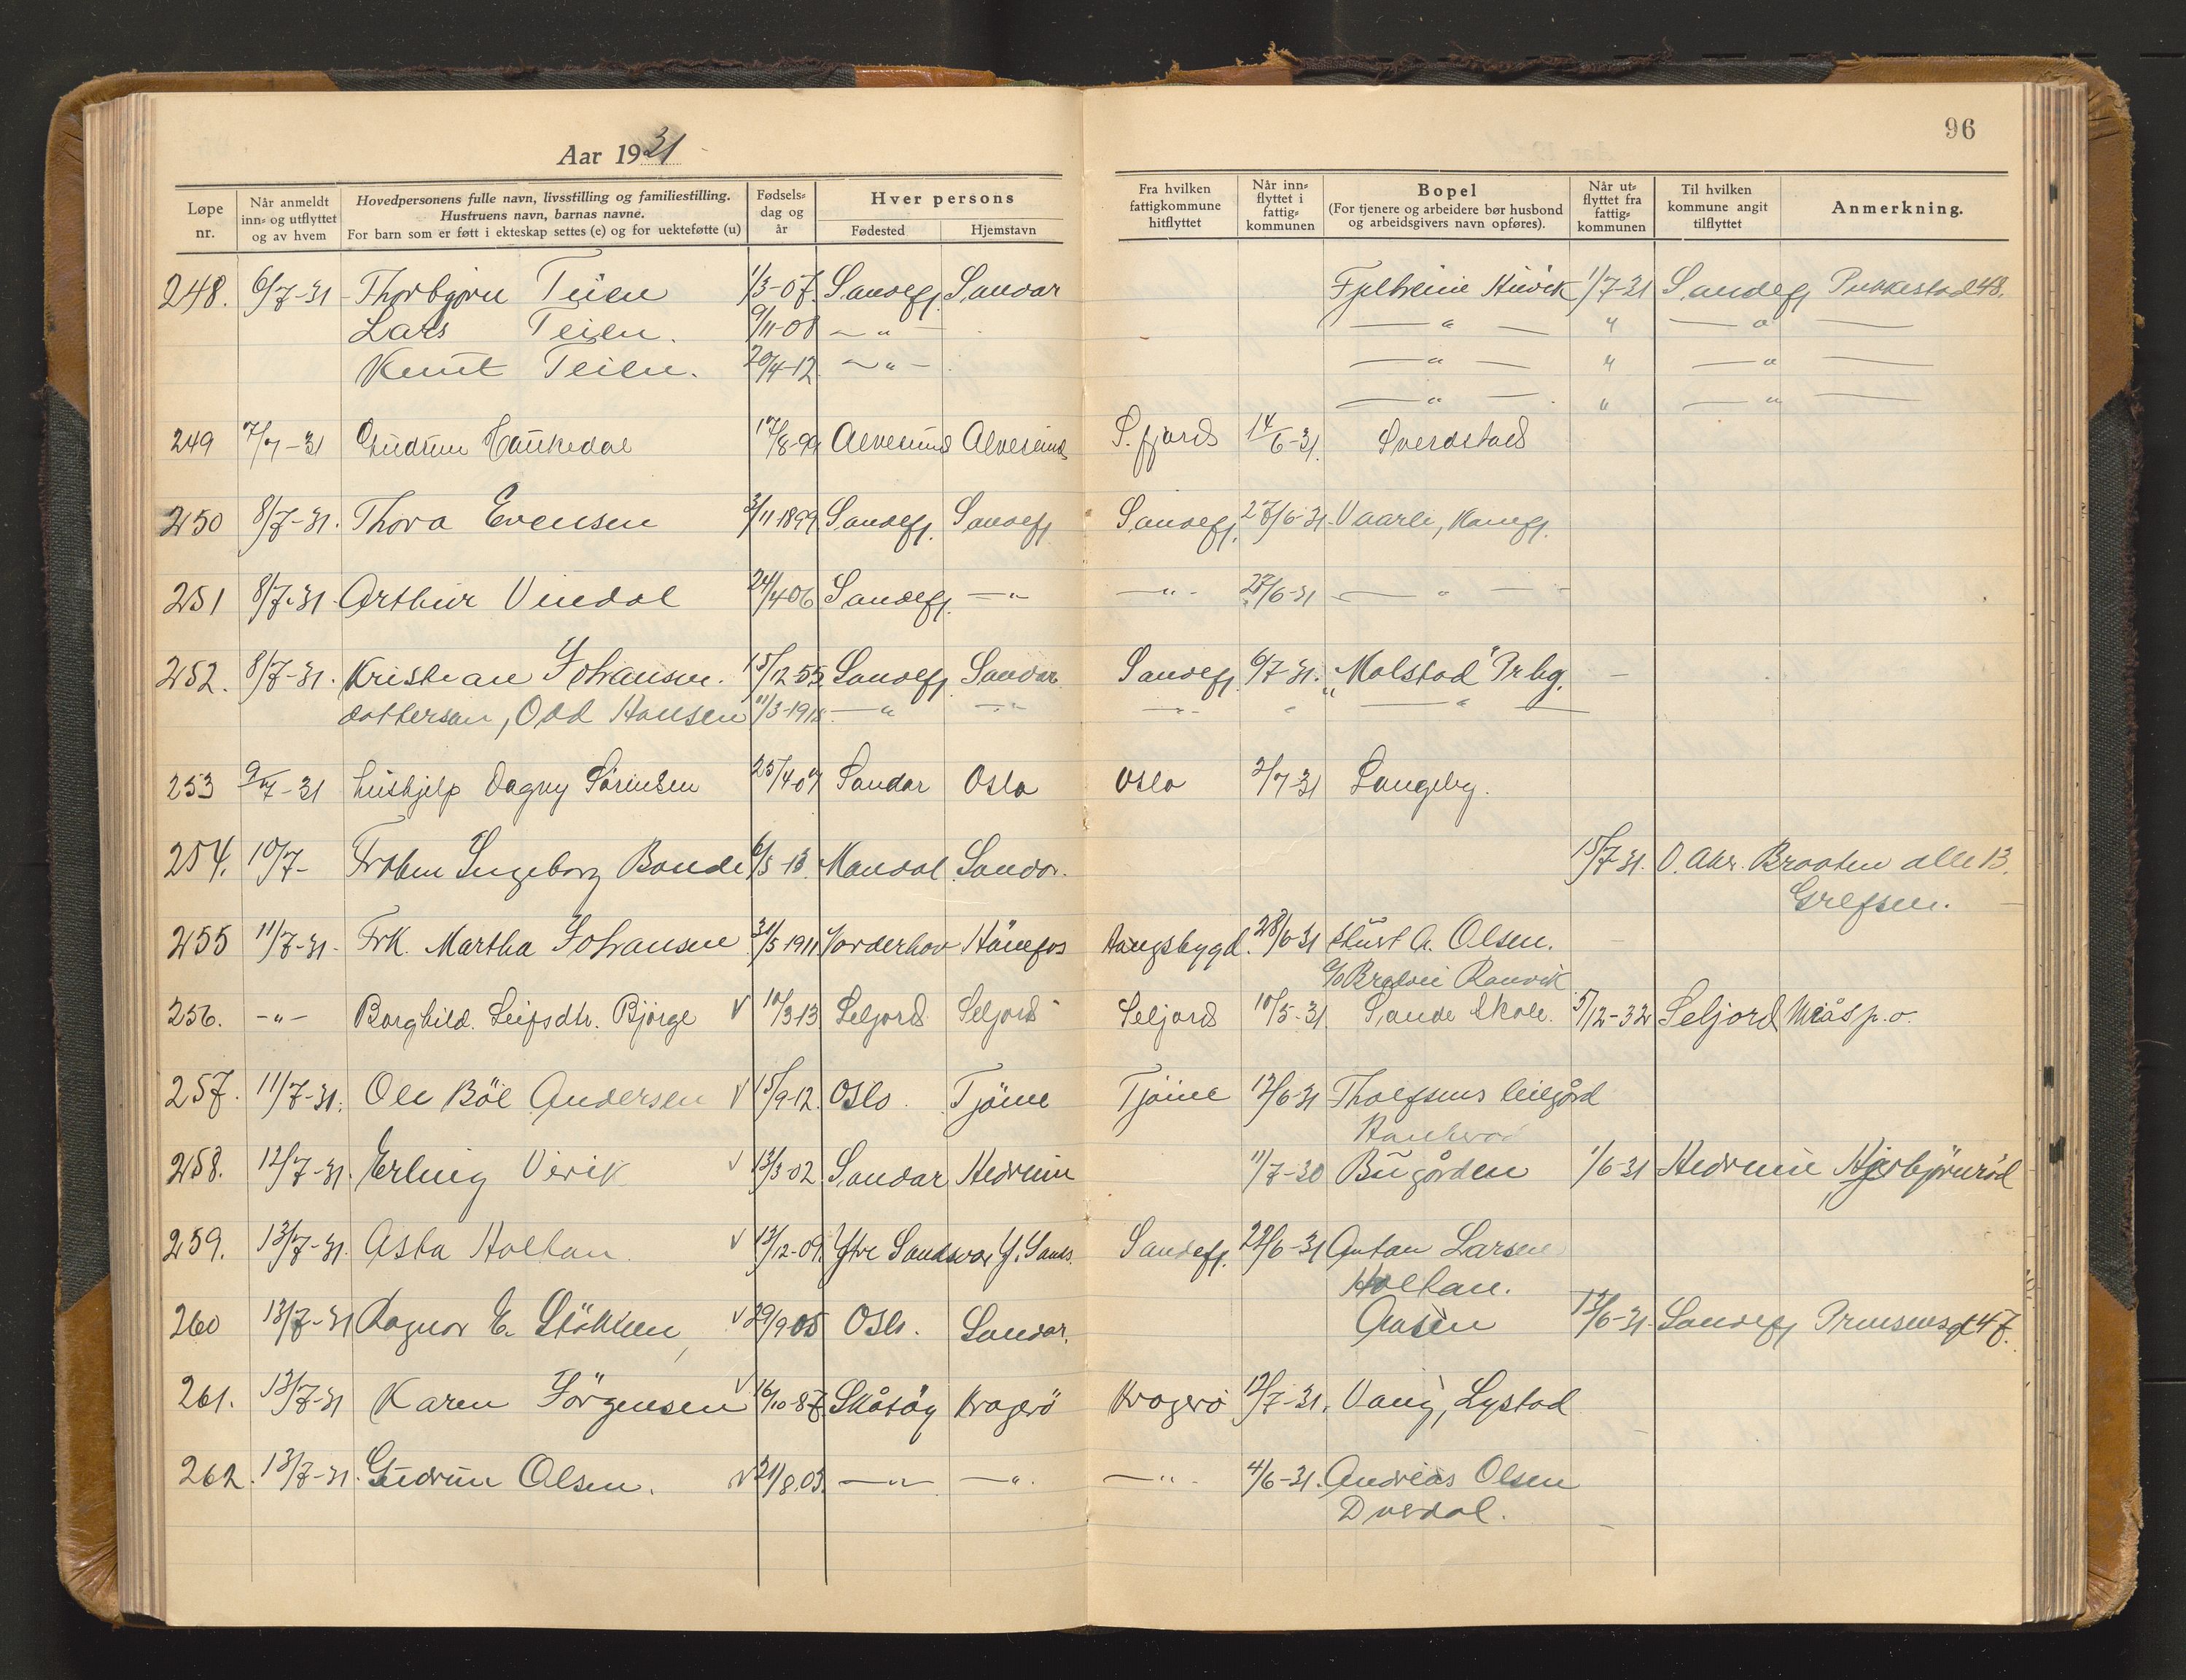 96
Aar 1931
Løpe nr. Når anmeldt inn- og utflyttet og av hvem Hovedpersonens fulle navn, livsstilling og familiestilling. Hustruens navn, barnas navne. For barn som er født i ekteskap settes (e) og for uekteføtte (u) Fødsels- dag og år Hver persons Fødested Hjemstavn Fra hvilken fattigkommune hitflyttet Når inn- flyttet i fattig- kommunen Bopel (For tjenere og arbeidere bør husbond og arbeidsgivers navn opføres). Når ut- flyttet fra fattig- kommunen Til hvilken kommune angit tilflyttet Anmerkning.
248. 6/7-31 Thorbjørn Teien 1/3-07 Sandefj. Sandar 1/7-31 Sandefj Pukkestad 48.
Lars Teien. 9/11-08 — " — — " — " — " —
Knut Teien. 20/4-12 — " — — " — " — " —
— " — " — " —
249 7/7-31 Gudrun Haukedal 17/8-99 Alversund Alversund S. fjord 14/6-31. Sverdstad
250 8/7-31. Thora Evensen 3/11-1899 Sandefj. Sandefj Sandefj. 27/6-31. Vaarli,
251 8/7-31. Arthur Vindal 24/4 06 Sandefj. — " — " - 27/6-31 — " —
252. 8/7-31. Kristian Johansen. 15/12-55 Sandefj. Sandar Sandefj. 6/7-31. "Molstad" Prbg.
dattersøn, Odd Hansen 11/3-1918 — " — " — " — " — " —
253 9/7-31 hushjelp Dagny Sørensen 25/4-07 Sandar Oslo Oslo 2/7-31 Langeby.
254. 10/7- Frøken Ingeborg Bonde 6/5-13. Mandal Sandar. 15/7-31. O. Aker. Braaten alle 13.
Grefsen.
255 11/7-31- Frk. Martha Johansen 31/5-1911 Norderhov Hönefos 28/6-31 A. Olsen.
c/o Ranvik
256. - " - Borghild. Leifsdtr. Bjørge V 10/3-13 Seljord Seljord Seljord 10/5-31 Sande Skole. 5/12-32 Seljord p. o.
257. 11/7-31. Ole Böe Andersen V 15/9-12. Oslo. Tjöme Tjöme 12/6-31 leilgård
258. 12/7-31. Erling Virik V 13/3-02. Sandar Hedrum 11/7-30 Bugården 1/6-31 Hedrum
259. 13/7-31. Asta Holtan. V 13/12-09. Ytre Sandsver Y. Sands. Sandefj. 22/6-31 Anton Larsen
Holtan.
260 13/7-31 Ragnar E. Stökken V 29/9-05 Oslo. Sandar. 13/6-31. Sandefj
261. 13/7-31 Karen Jörgensen V 16/10-87 Skåtöy Kragerö Kragerö 12/7-31. Lystad
262. 13/7-31. Gudrun Olsen. V 21/8.03. — " — — " . — " - 4/6-31. Andreas Olsen
Dverdal.